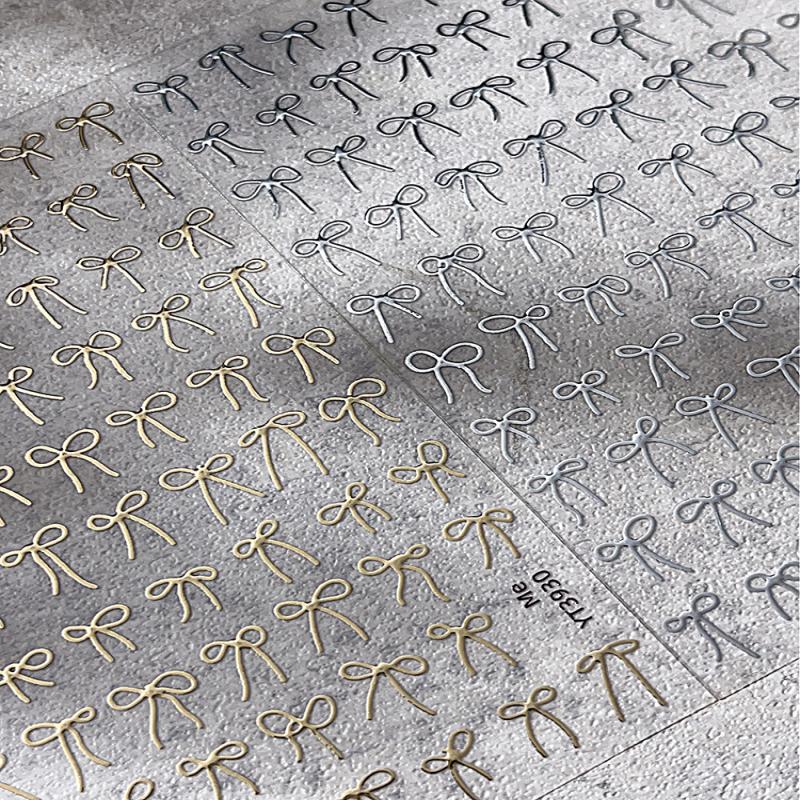 Me
YT3930